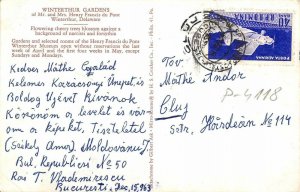 WINTERTHUR GARDENS
of Mr. and Mrs. Henry Francis du Pont
Winterthur, Delaware
Flowering cherry trees blossom against a
background of narcissi and forsythia
Gardens and selected rooms of the Henry Francis du Pont
Winterthur Museum open without reservations the last
week of April and the first four weeks in May, except
Sundays and Mondays.
Kedves Máthé Család
Kellemes Karácsonyi Ünnepet és
Boldog Újévet Kivánok
Köszönöm a levelet is vár-
om a képeket, Tisztelettel
(Székely Ámos) Moldovănuş
Bul. Republicii No 50
Ras T. Vladimirescu
Bucuresti Dec, 15, 963
POSTA ROMANA
Tov.
Máthé Andor
Cluj
Str. No 114
P-4118